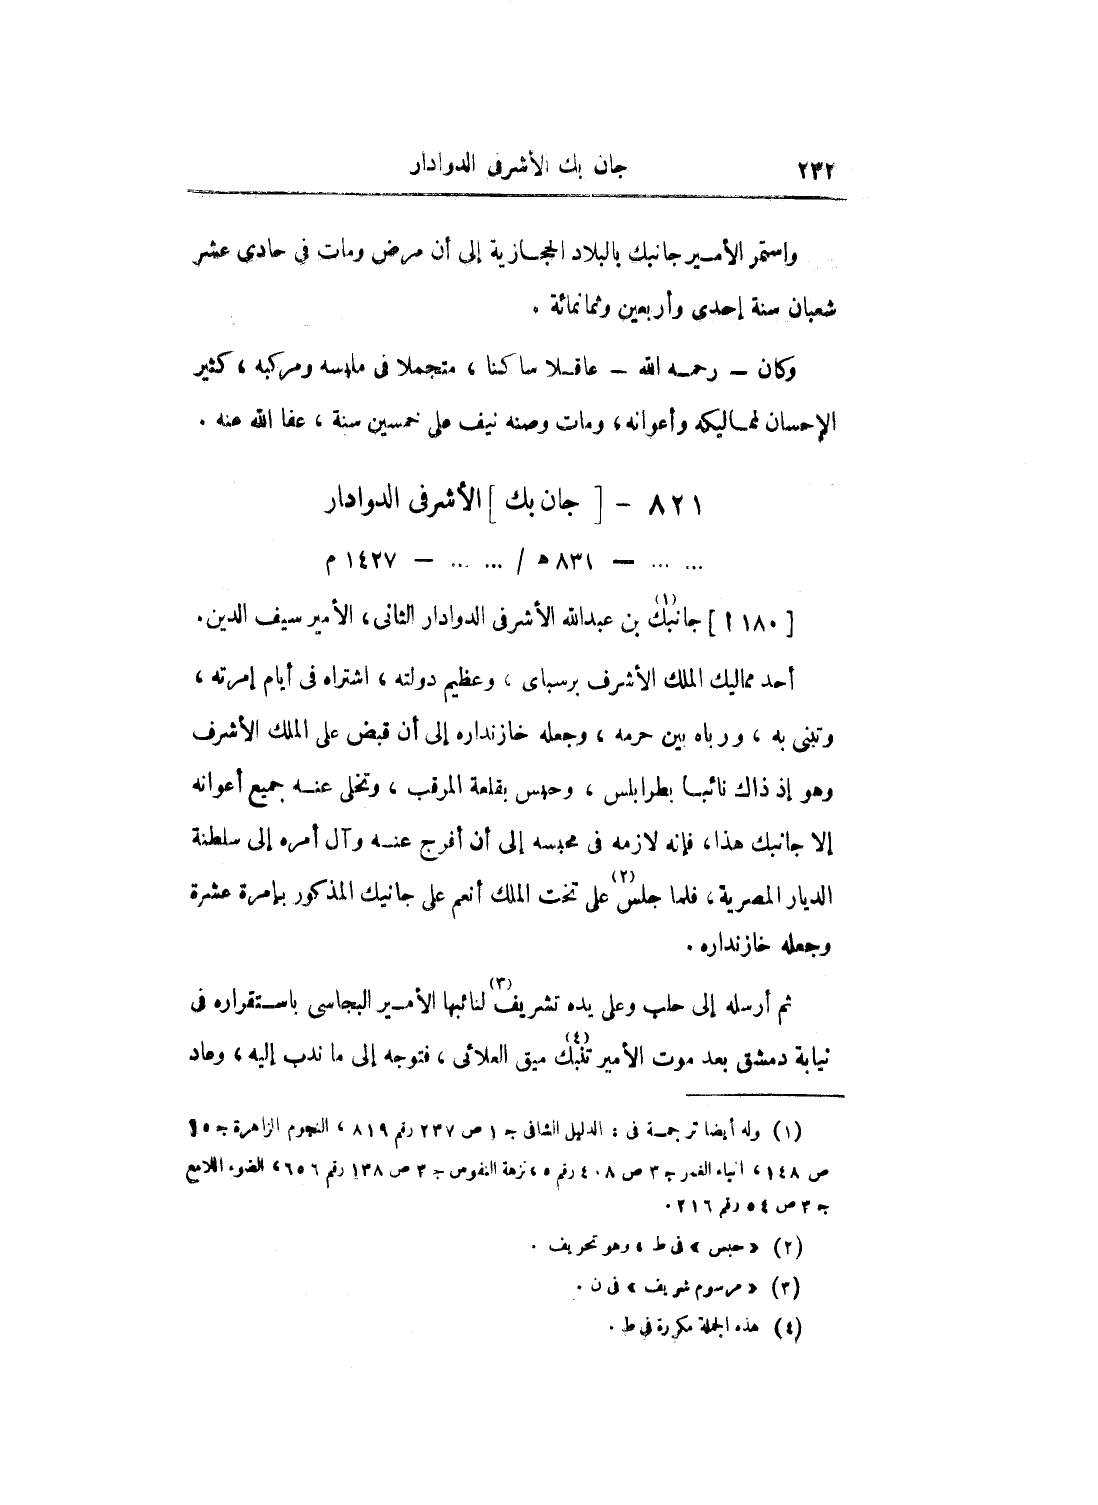 ٢٣٢ جان بك الأشرفى الدوادار
واستمر الأمير جانبك بالبلاد الحجازية إلى أن مرض ومات فى حادى عشر
شعبان سنة إحدى وأربعين وثمانمائة .
وكان – رحمه الله – عاقلا ساكنا ، متجملا فى ملبسه ومركبه ، كثير
الإحسان لمماليكه وأعوانه ، ومات وسنه نيف على خمسين سنة ، عفا الله عنه .
٨٢١ – [ جان بك ] الأشرفى الدوادار
... ... – ٨٣١ ھ / ... ... – ١٤٢٧ م
[ ١٨٠ أ ] جانبك (١) بن عبدالله الأشرفى الدوادار الثانى ، الأمير سيف الدين .
أحد مماليك الملك الأشرف برسباى ، وعظيم دولته ، اشتراه فى أيام إمرته ،
وتبنى به ، ورباه بين حرمه ، وجعله خازنداره إلى أن قبض على الملك الأشرف
وهو إذ ذاك نائبا بطرابلس ، وحبس بقلعة المرقب ، وتخلى عنه جميع أعوانه
إلا جانبك هذا ، فإنه لازمه فى محبسه إلى أن أفرج عنه وآل أمره إلى سلطنة
الديار المصرية ، فلما جلس (٢) على تخت الملك أنعم على جانبك المذكور بإمرة عشرة
وجعله خازنداره .
ثم أرسله إلى حلب وعلى يده تشريف (٣) لنائبها الأمير البجاسى باستقراره فى
نيابة دمشق بعد موت الأمير تنبك (٤) ميق العلائى ، فتوجه إلى ما ندب إليه ، وعاد
(١) وله أيضا ترجمة فى : الدليل الشافى ج ١ ص ٢٣٧ رقم ٨١٩ ، النجوم الزاهرة ج ١٥
ص ١٤٨ ، انباء الغمر ج ٣ ص ٤٠٨ رقم ٥ ، نزهة النفوس ج ٣ ص ١٣٨ رقم ٦٥٦ ، الضوء اللامع
ج ٣ ص ٥٤ رقم ٢١٦ .
(٢) « حبس » فى ط ، وهو تحريف .
(٣) « مرسوم شريف » فى ن .
(٤) هذه الجملة مكررة فى ط .